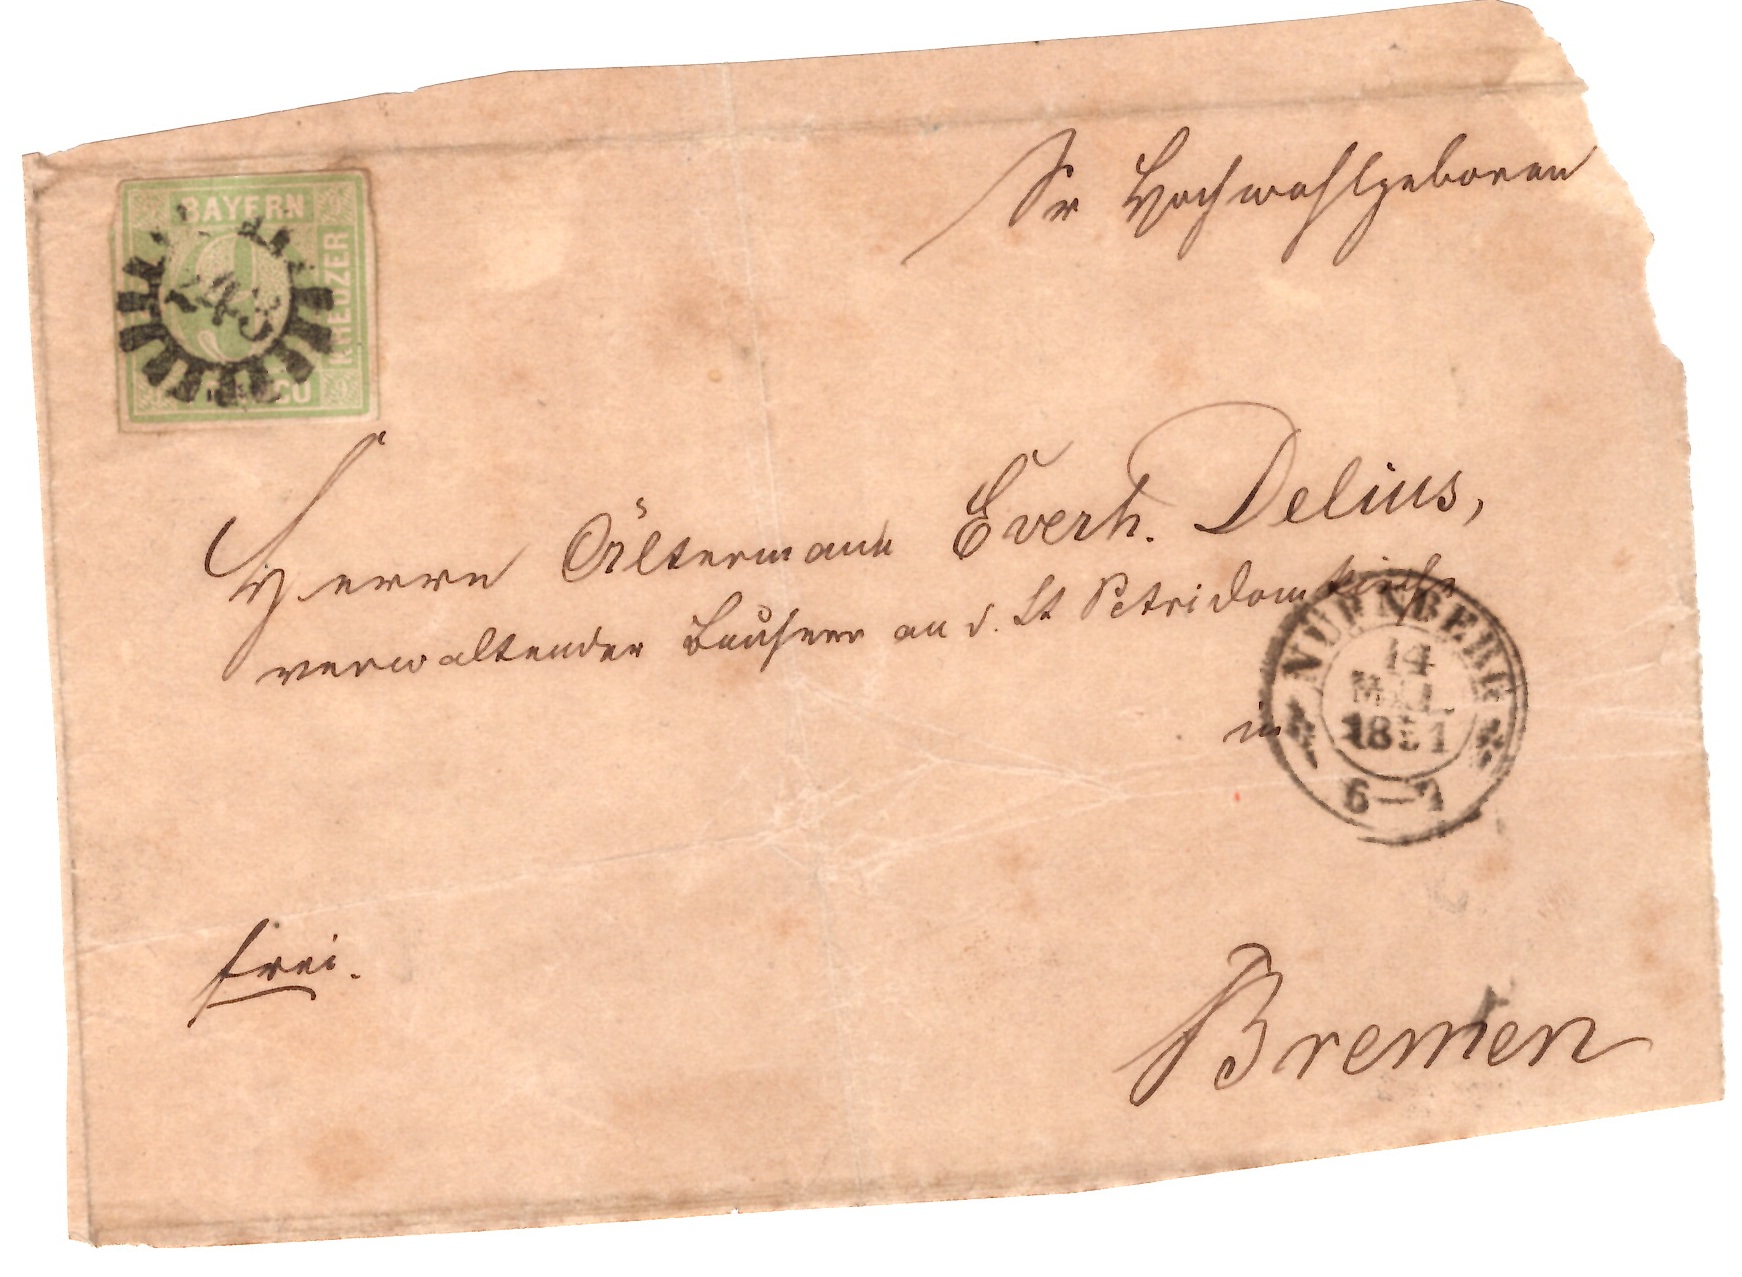 BAYERN
9
KREUZER
FRANCO
243
Sr Hochwohlgeboren
Herrn Ältermann Everh. Delius,
verwaltender Bauherr an d. St Petri Domkirche
in
NÜRNBERG
14
1851
Bremen
frei.